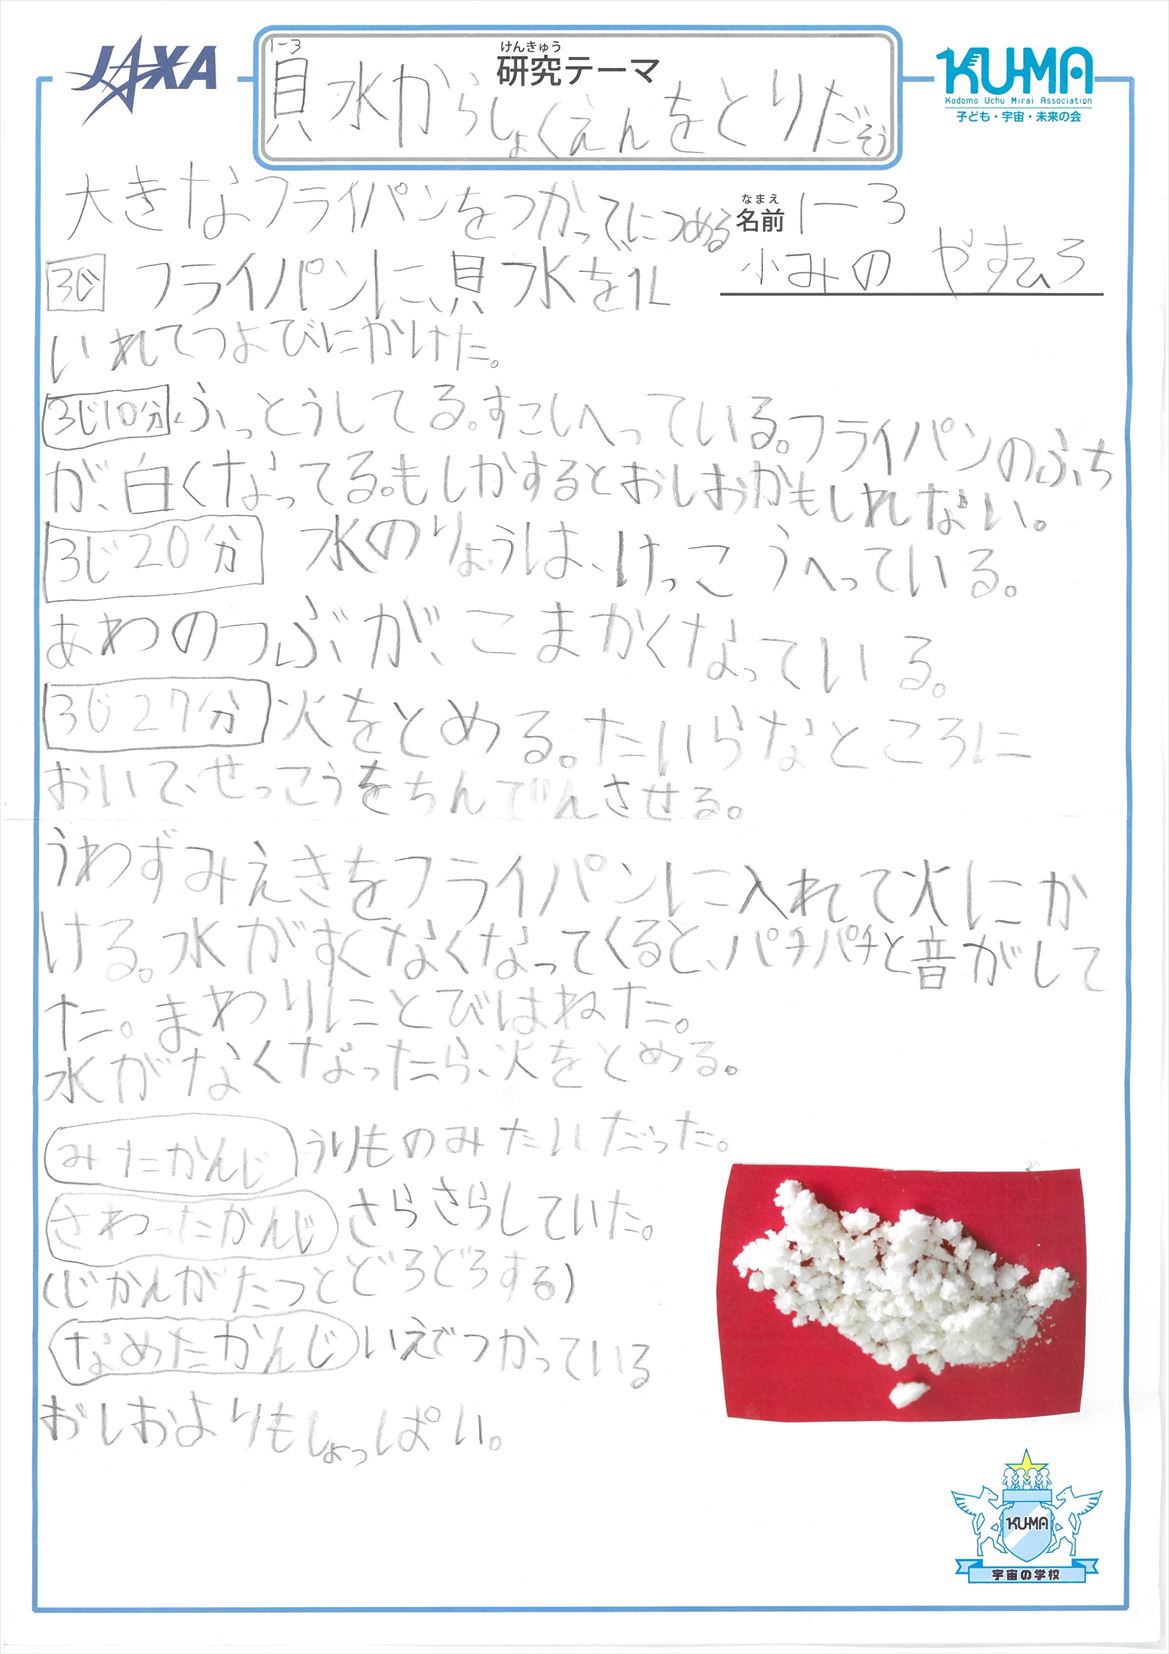 JAXA
けんきゅう
研究テーマ
KU-MA
Kodomo Uchu Mirai Association
子ども・宇宙・未来の会
1-3
貝水からしょくえんをとりだそう
大きなフライパンをつかってにつめる
なまえ
名前 1-3
小みの やすひろ
3じ フライパンに、貝水を1L
いれてつよびにかけた。
3じ10分 ふっとうしてる。すこしへっている。フライパンのふち
が、白くなってる。もしかするとおしおかもしれない。
3じ20分 水のりょうは、けっこうへっている。
あわのつぶが、こまかくなっている。
3じ27分 火をとめる。たいらなところに
おいて、せっこうをちんでんさせる。
うわずみえきをフライパンに入れて火にか
ける。水がすくなくなってくると、パチパチと音がして
た。まわりにとびはねた。
水がなくなったら、火をとめる。
みたかんじ うりものみたいだった。
さわったかんじ さらさらしていた。
(じかんがたつとどろどろする)
なめたかんじ いえでつかっている
おしおよりもしょっぱい。
KU-MA
宇宙の学校